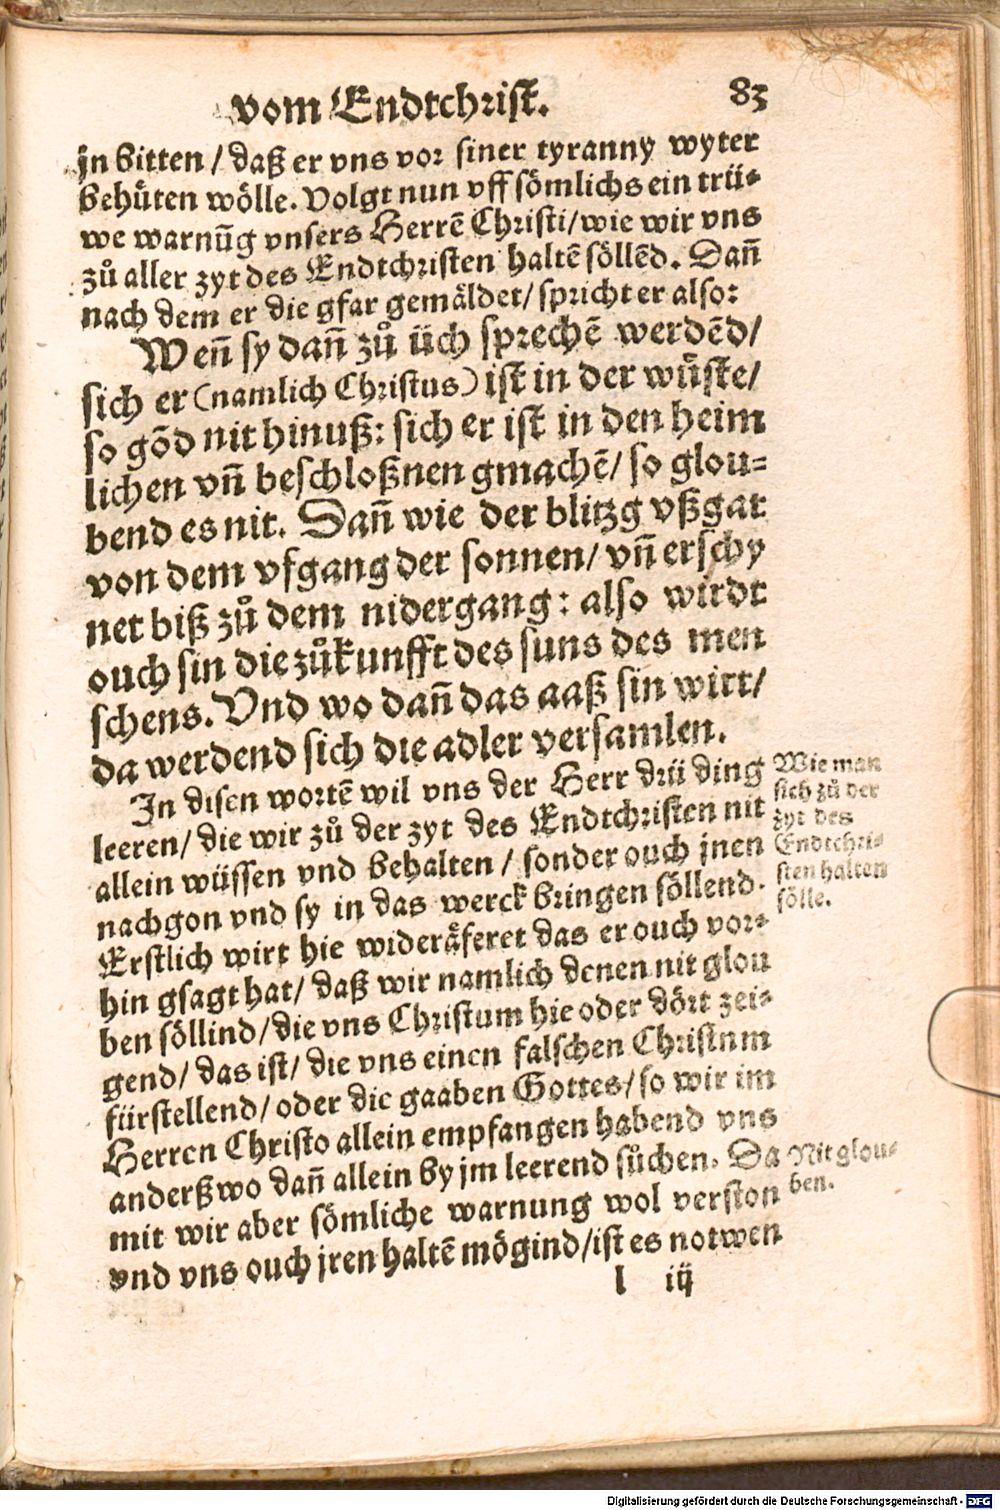 vom Endtchrist. 83
jn bitten / daß er vns vor siner tyranny wyter
behuͤten woͤlle. Volgt nun vff soͤmlichs ein trü⸗
we warnūg vnsers Herrē Christi/wie wir vns
zuͦ aller zyt des Endtchristen haltē soͤllēd. Dañ
nach dem er die gfar gemaͤldet/ spricht er also:
Weñ sy dañ zuͦ üch sprechē werdēd/
sich er (namlich Christus) ist in der wuͤste/
so gōd nit hinuß: sich er ist in den heim
lichen vñ beschloßnen gmachē/ so glou⸗
bend es nit. Dañ wie der blitzg vßgat
von dem vfgang der sonnen/ vñ erschy
net biß zuͦ dem nidergang: also wirdt
ouch sin die zuͦkunfft des suns des men
schens. Vnd wo dañ das aaß sin wirt/
da werdend sich die adler versamlen.
In disen wortē wil vns der Herr drü ding
leeren/ die wir zuͦ der zyt des Endtchristen nit
allein wüssen vnd behalten / sonder ouch jnen
nachgon vnd sy in das werck bringen soͤllend.
Wie man
sich zuͦ der
zyt des
Endtchri⸗
sten halten
soͤlle.
Erstlich wirt hie wideraͤferet das er ouch vor⸗
hin gsagt hat/ daß wir namlich denen nit glou
ben soͤllind/ die vns Christum hie oder doͤrt zei⸗
gend/ das ist/ die vns einen falschen Christum
fürstellend/ oder die gaaben Gottes/ so wir im
Herren Christo allein empfangen habend vns
anderßwo dañ allein by jm leerend suͤchen. Da
mit wir aber soͤmliche warnung wol verston
vnd vns ouch jren haltē moͤgind/ist es notwen
Nit glou⸗
ben.
l iij
Digitalisierung gefördert durch die Deutsche Forschungsgemeinschaft - DFG